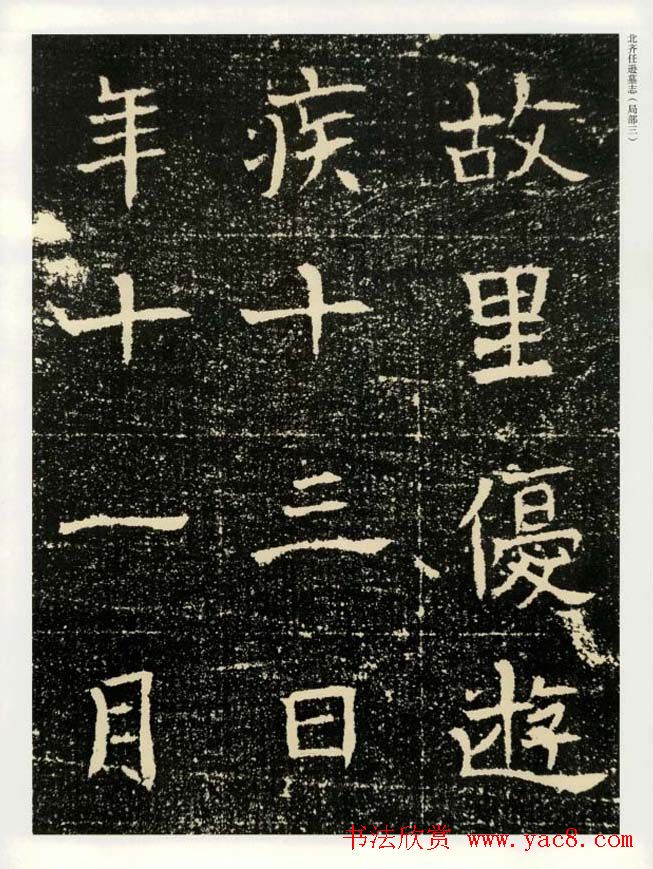 北齐任逊墓志（局部三）
故里優遊
疾十三日
年十一月
书法欣赏 www.yac8.com